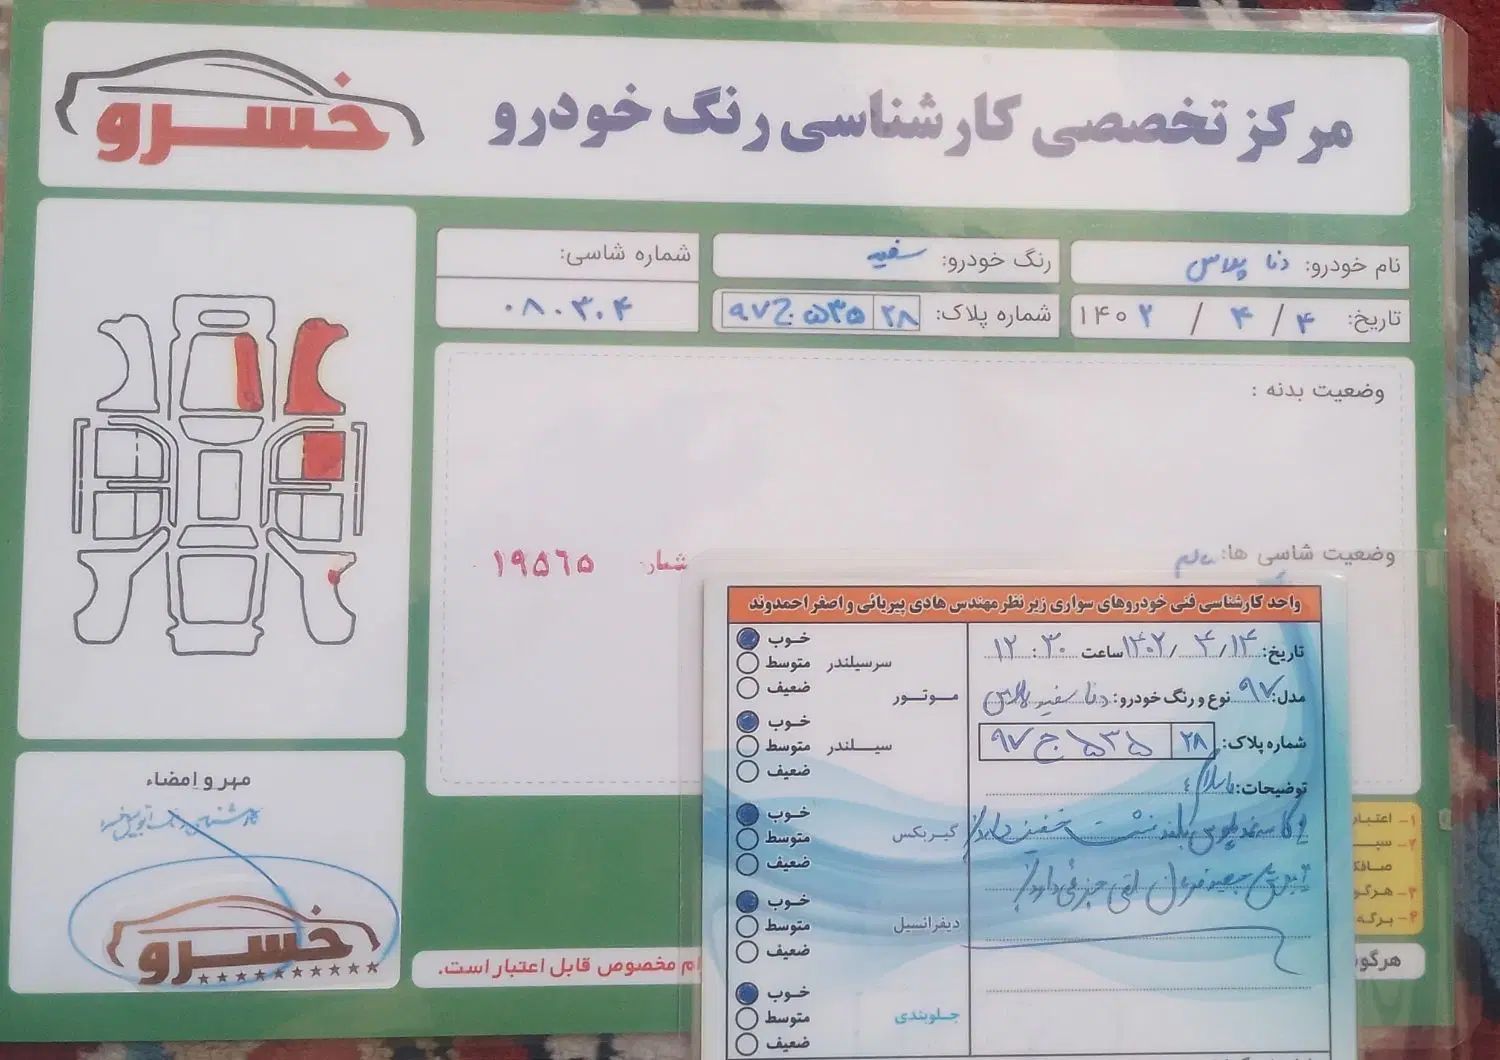 مرکز تخصصی کارشناسی رنگ خودرو
خسرو
نام خودرو: دنا پلاس
رنگ خودرو: سفید
شماره شاسی:
تاریخ: ۱۴۰۲ / ۴ / ۴
شماره پلاک: ۲۸ ۵۳۵ج۹۷
۰۸۰۳۰۴
وضعیت بدنه :
وضعیت شاسی ها: سالم
شمار ۱۹۵۶۵
مهر و امضاء
خسرو
ام مخصوص قابل اعتبار است.
۱- اعتبار
۲- سبـ
صافک
۳- هرگو
۴- برگه
هرگو
واحد کارشناسی فنی خودروهای سواری زیر نظر مهندس هادی پیریائی و اصغر احمدوند
تاریخ: ۱۴۰۲/۴/۱۴ ساعت ۱۲:۳۰
مدل: ۹۷ نوع و رنگ خودرو: دنا سفید پلاس
شماره پلاک: ۲۸ ۵۳۵ج۹۷
توضیحات: باسلام
دارد
جزئی دارد
موتور
سرسیلندر
خوب
متوسط
ضعیف
سیلندر
خوب
متوسط
ضعیف
گیربکس
خوب
متوسط
ضعیف
دیفرانسیل
خوب
متوسط
ضعیف
جلوبندی
خوب
متوسط
ضعیف